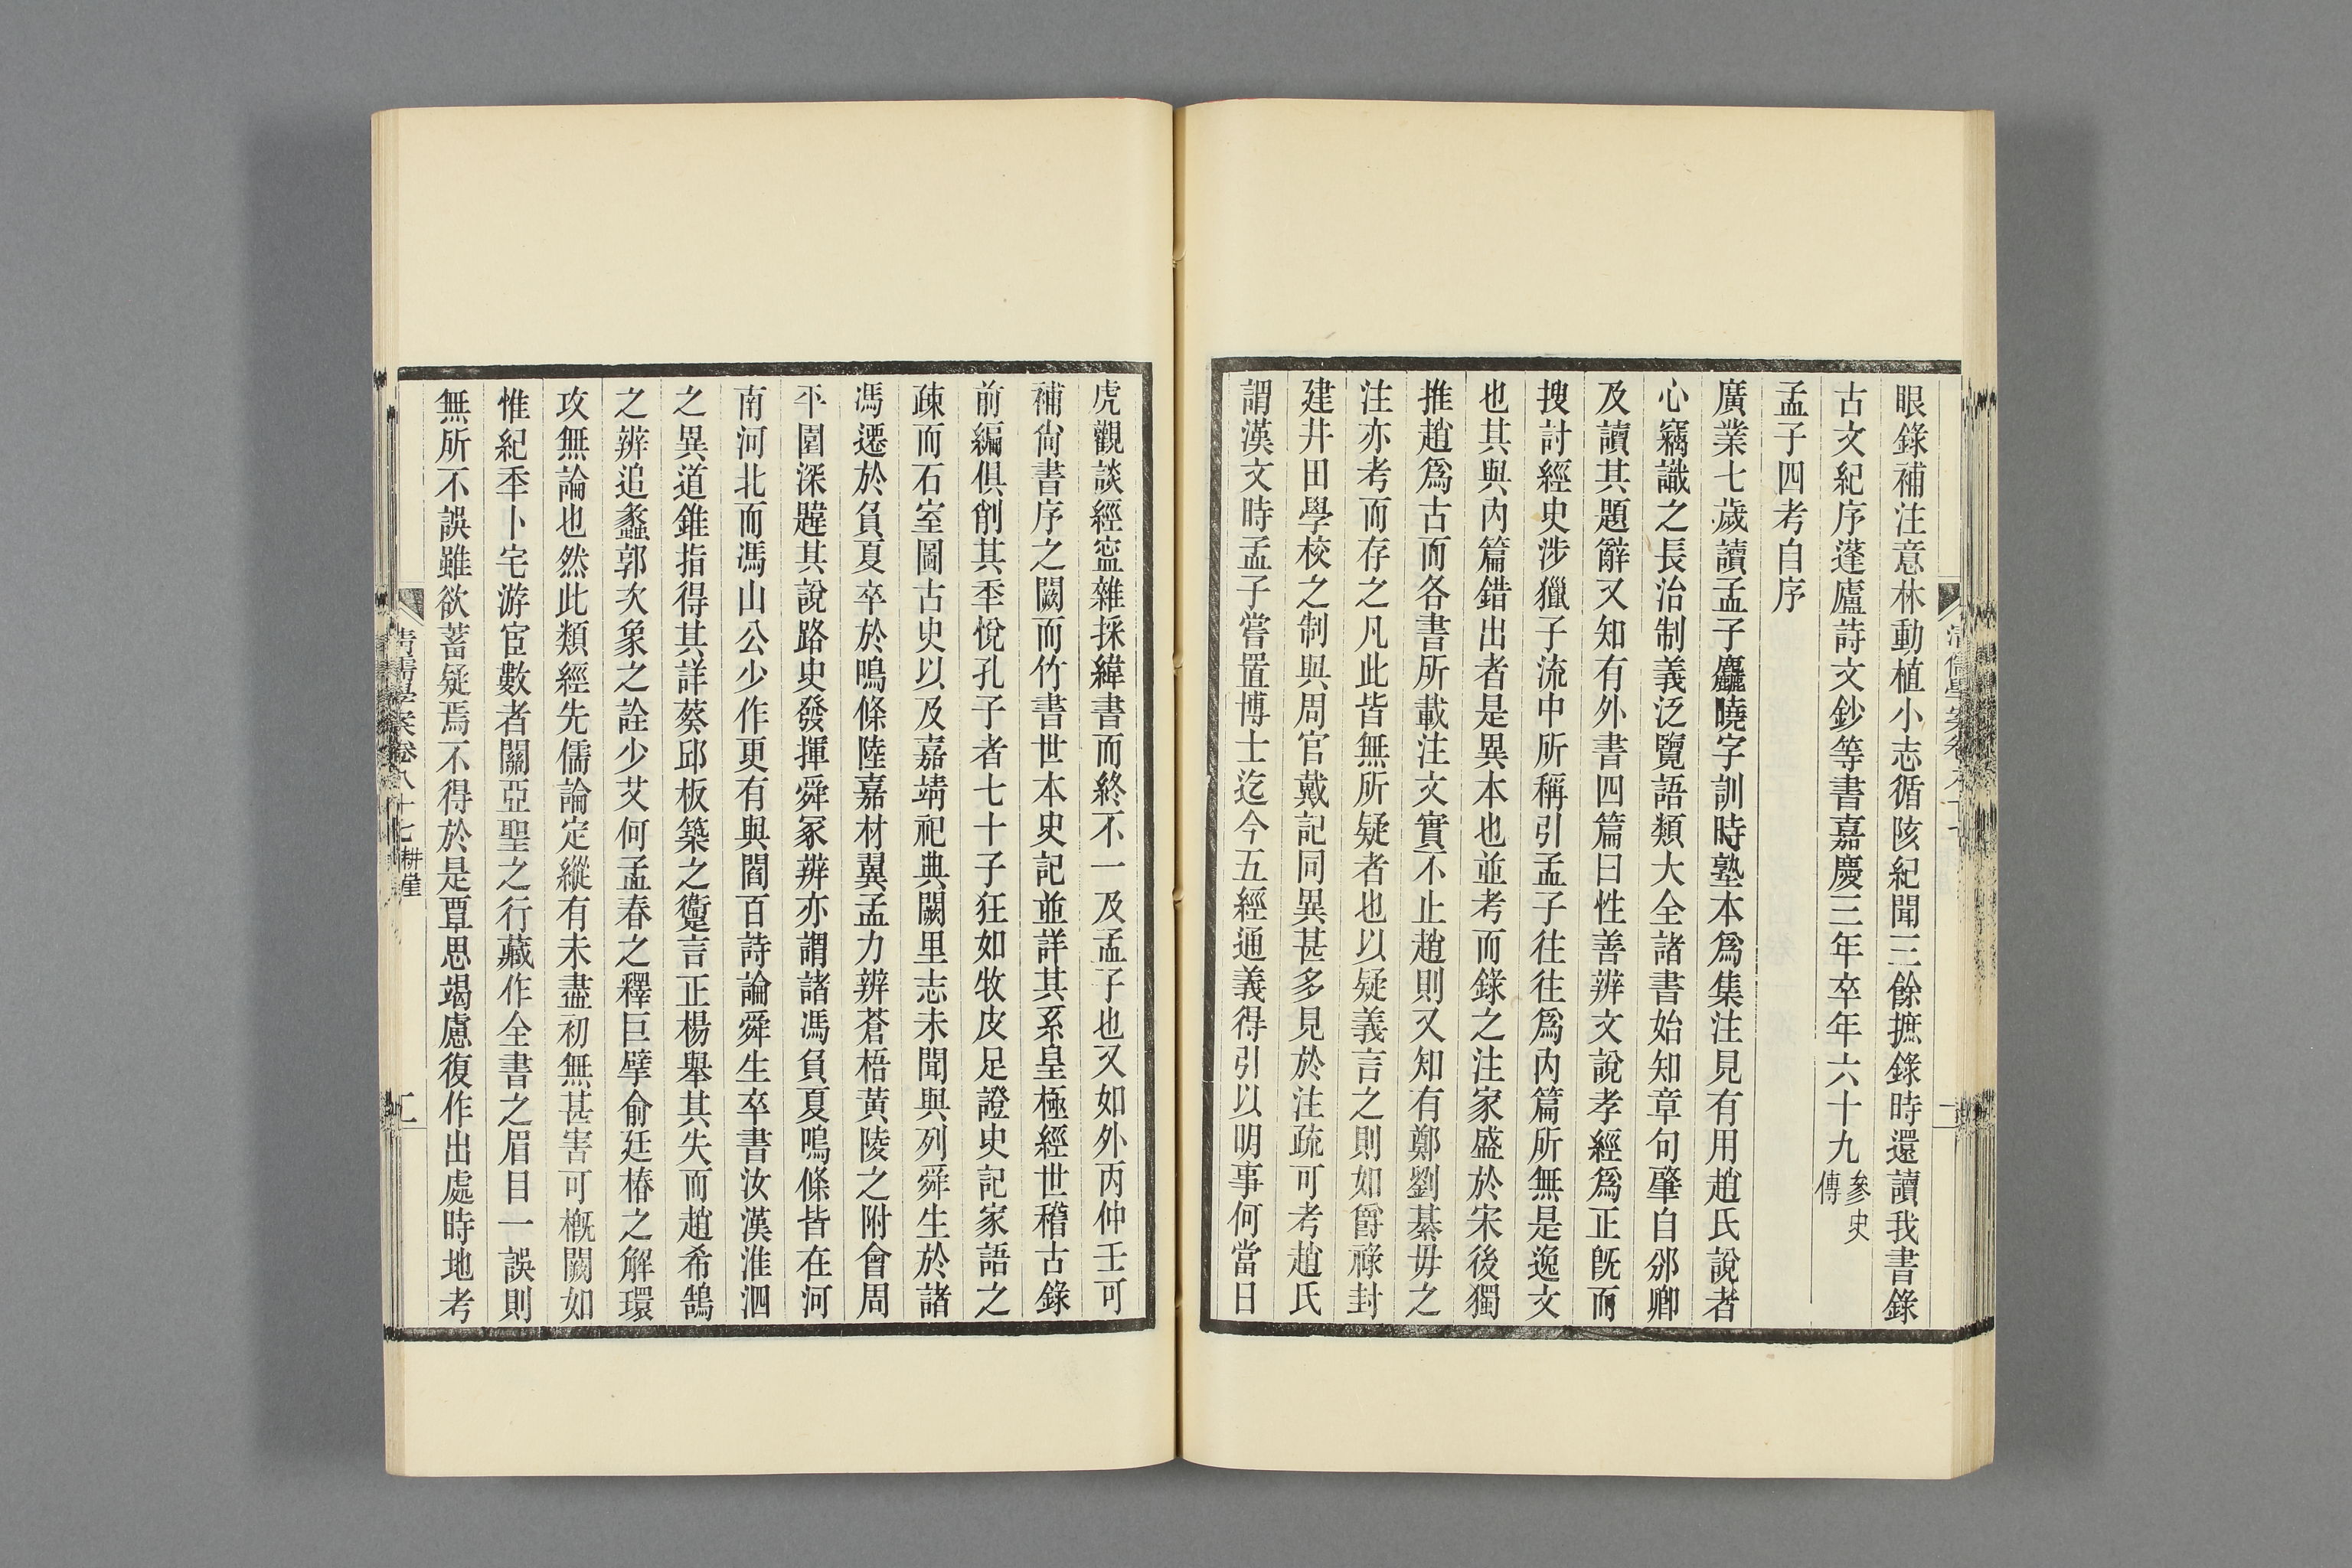 眼錄補注意林動植小志循陔紀聞三餘摭錄時還讀我書錄
古文紀序蓬廬詩文鈔等書嘉慶三年卒年六十九參史
傳
孟子四考自序
廣業七歲讀孟子麤曉字訓時塾本爲集注見有用趙氏說者
心竊識之長治制義泛覽語類大全諸書始知章句肇自邠卿
及讀其題辭又知有外書四篇曰性善辨文說孝經爲正旣而
搜討經史涉獵子流中所稱引孟子往往爲內篇所無是逸文
也其與內篇錯出者是異本也並考而錄之注家盛於宋後獨
推趙爲古而各書所載注文實不止趙則又知有鄭劉綦毋之
注亦考而存之凡此皆無所疑者也以疑義言之則如爵祿封
建井田學校之制與周官戴記同異甚多見於注疏可考趙氏
謂漢文時孟子嘗置博士迄今五經通義得引以明事何當日
虎觀談經寍雜採緯書而終不一及孟子也又如外丙仲壬可
補尙書序之闕而竹書世本史記並詳其系皇極經世稽古錄
前編俱削其秊悅孔子者七十子狂如牧皮足證史記家語之
疎而石室圖古史以及嘉靖祀典闕里志未聞與列舜生於諸
馮遷於負夏卒於鳴條陸嘉材翼孟力辨蒼梧黃陵之附會周
平園深韙其說路史發揮舜冢辨亦謂諸馮負夏鳴條皆在河
南河北而馮山公少作更有與閻百詩論舜生卒書汝漢淮泗
之異道錐指得其詳葵邱板築之讆言正楊舉其失而趙希鵠
之辨追蠡郭次象之詮少艾何孟春之釋巨擘俞廷椿之解環
攻無論也然此類經先儒論定縱有未盡初無甚害可槪闕如
惟紀秊卜宅游宦數者關亞聖之行藏作全書之眉目一誤則
無所不誤雖欲蓄疑焉不得於是覃思竭慮復作出處時地考
清儒學案卷八十七 耕崖 二